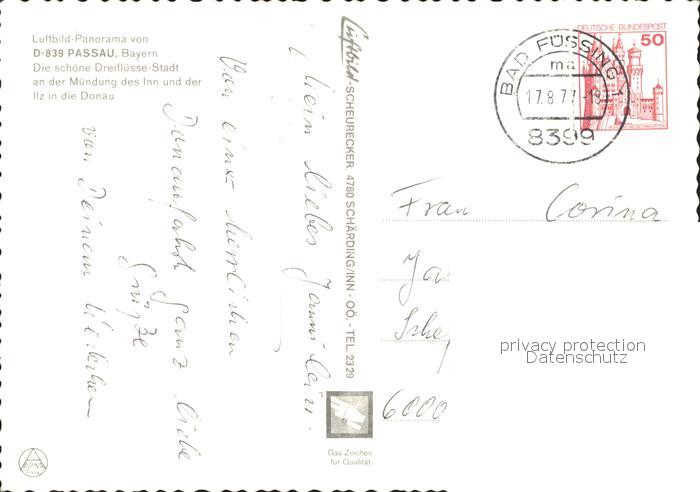 Luftbild-Panorama von
D-839 PASSAU, Bayern
Die schöne Dreiflüsse-Stadt
an der Mündung des Inn und der
Ilz in die Donau
Mein liebes
Von einer herrlichen
Donaufahrt ganz liebe
Grüße
von Deinem
Luftbild-SCHEURECKER, 4780 SCHÄRDING/INN - OÖ. - TEL. 2329
DEUTSCHE BUNDESPOST
50
BAD FÜSSING 1
ma
17.8.77-18
8399
Frau Corina
Ja
Sche
6000
privacy protection
Datenschutz
Das Zeichen
für Qualität
ALPINA